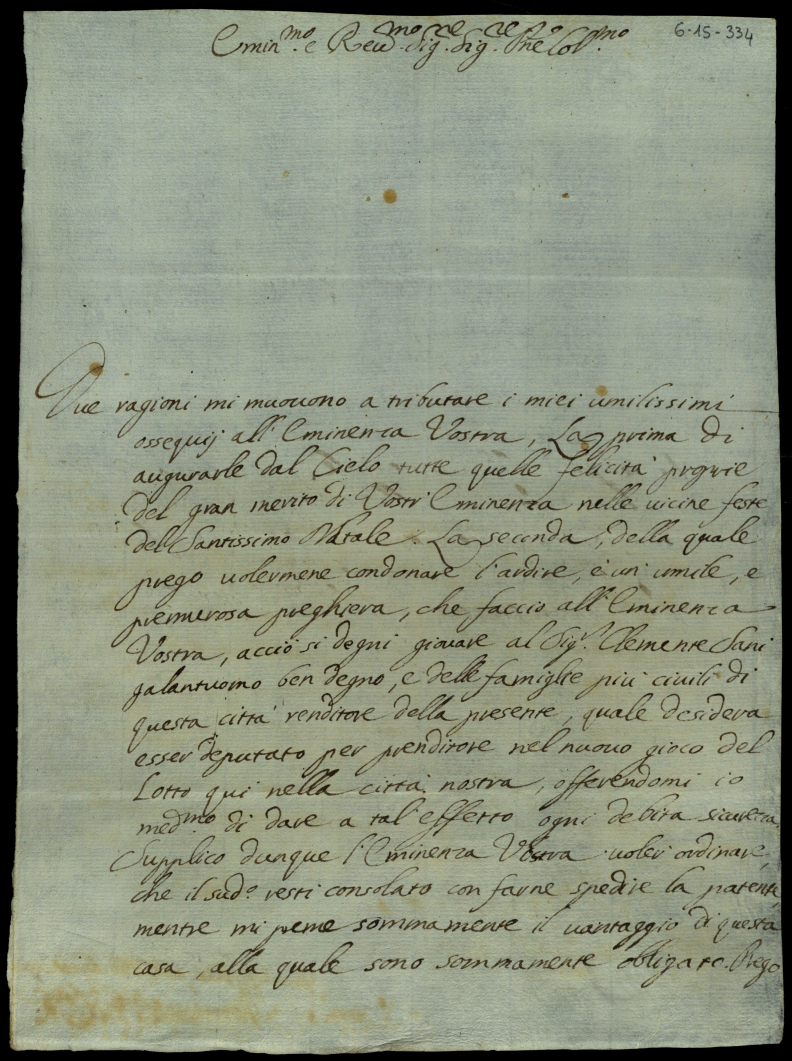 6-15-334
Emin.mo e Reu.mo Sig.re Sig.re Pne Col.mo
Due ragioni mi muouono a tributare i miei umilissimi
ossequij all'Eminenza Vostra, La prima di
augurarle dal Cielo tutte quelle felicità proprie
del gran merito di Vostr'Eminenza nelle uicine feste
del Santissimo Natale. La seconda, della quale
prego uolermene condonare l'ardire, è un'umile, e
premurosa preghiera, che faccio all'Eminenza
Vostra, acciò si degni giouare al Sig.r Clemente Sani
galantuomo ben degno, e delle famiglie più ciuili di
questa città renditore della presente, quale desidera
esser deputato per prenditore nel nuouo gioco del
Lotto qui nella città nostra, offerendomi io
med.mo di dare a tal'effetto ogni debita sicurezza.
Supplico dunque l'Eminenza Vostra uoler ordinare,
che il sud.o resti consolato con farne spedire la patente,
mentre mi preme sommamente il uantaggio di questa
casa, alla quale sono sommamente obligato. Prego